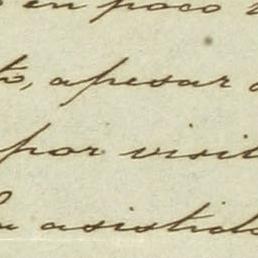 en poco
apesar
por visit
asistid